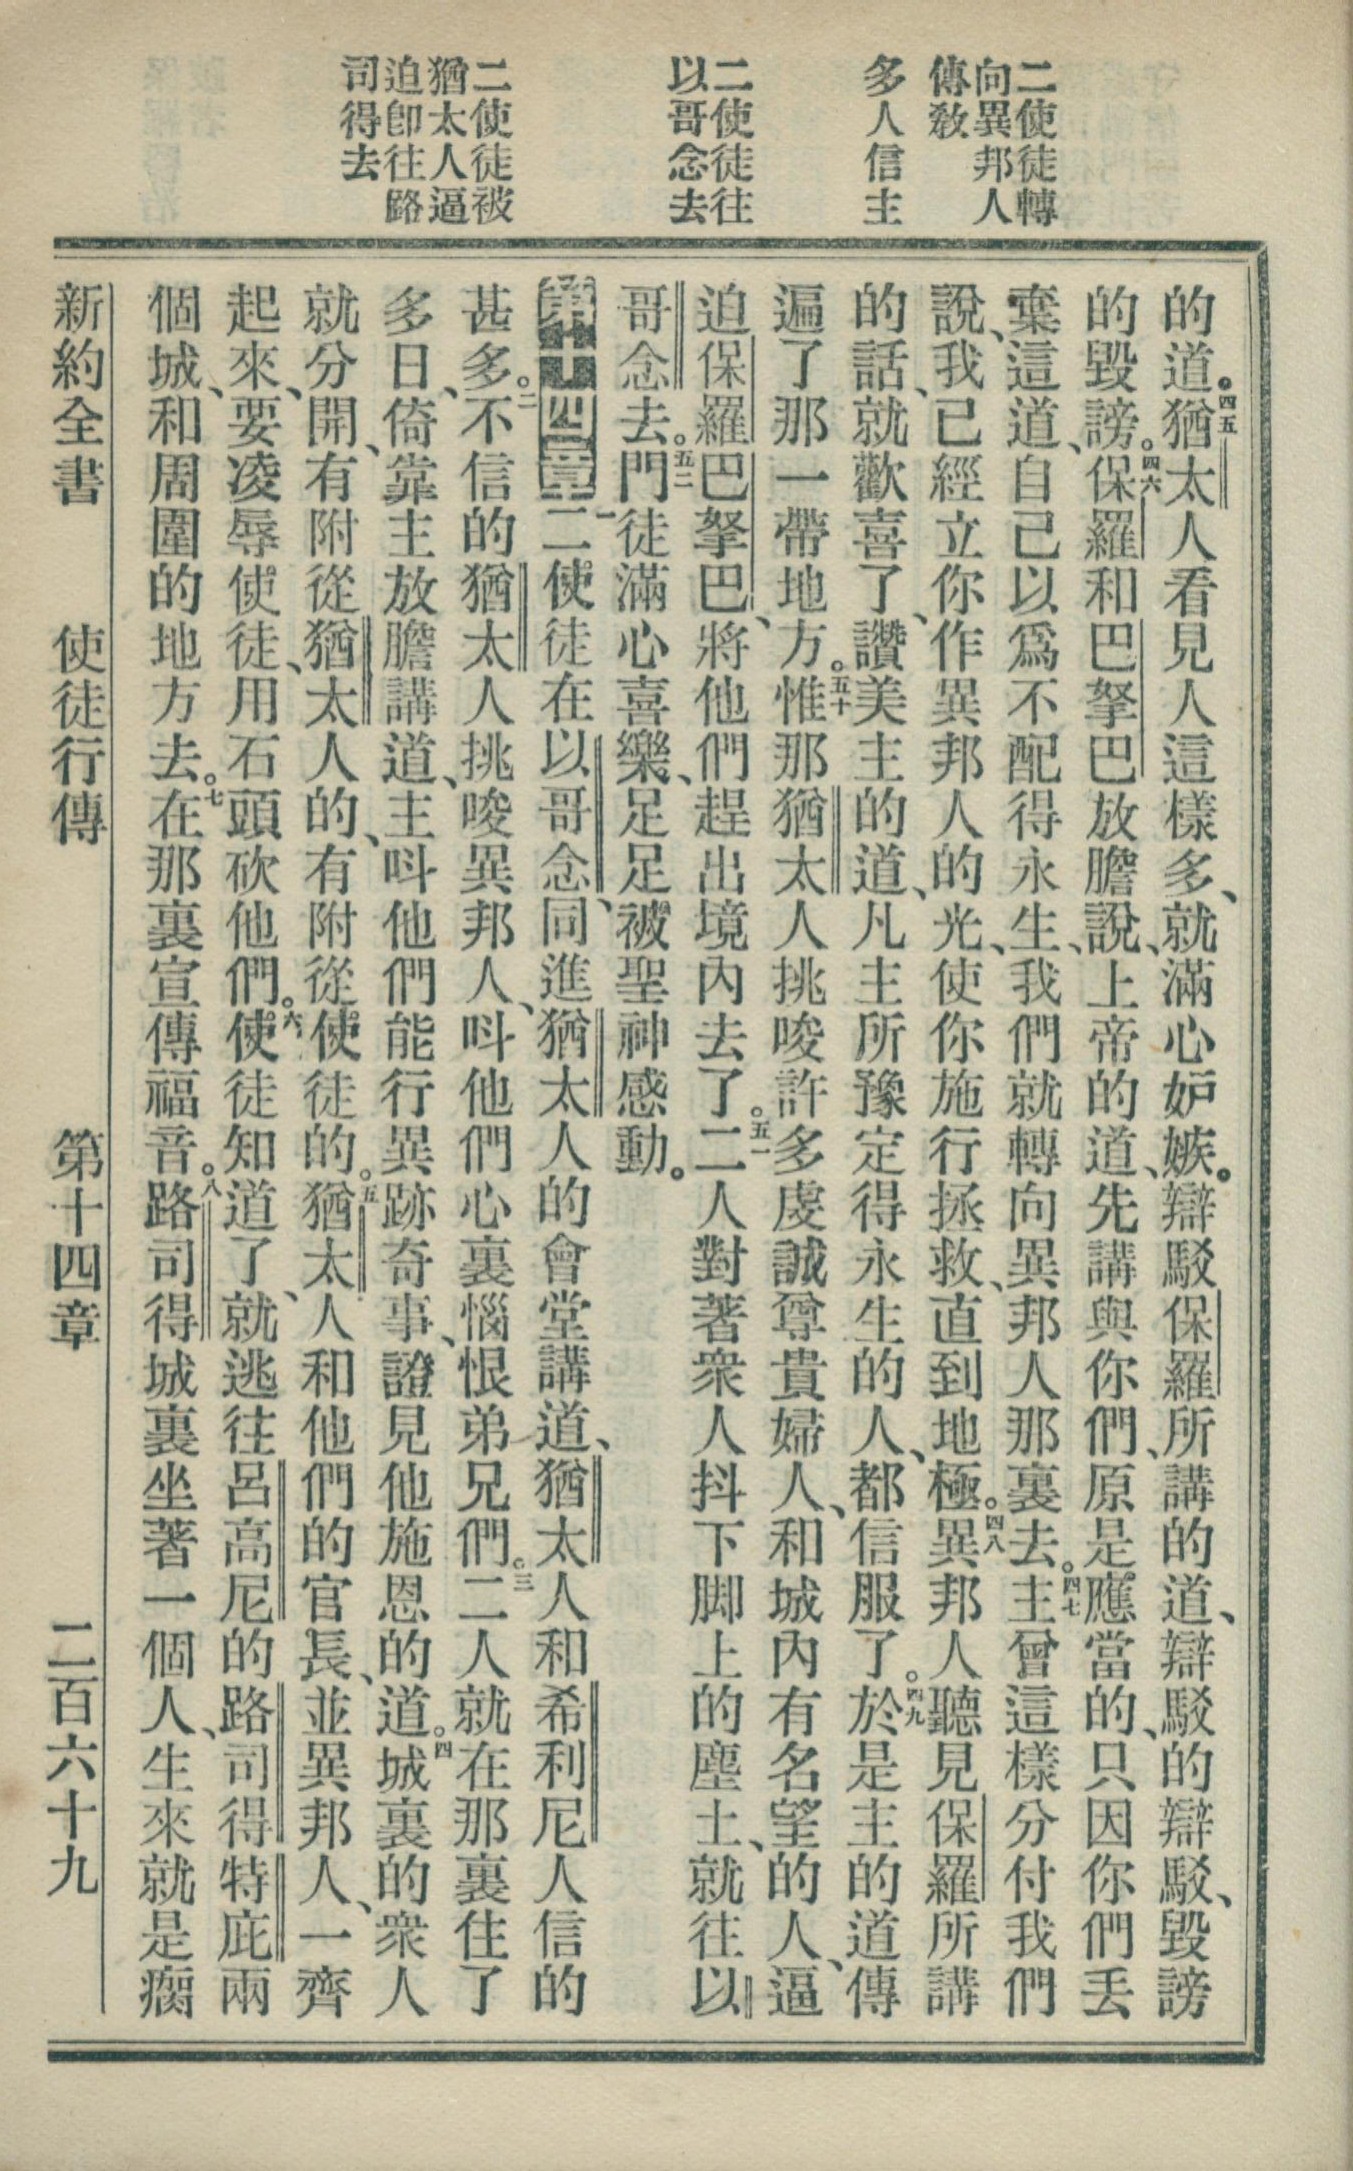 二使徒轉
向異邦人
傳敎
多人信主
二使徒往
以哥念去
二使徒被
猶太人逼
迫卽往路
司得去
的道。四五猶太人看見人這樣多、就滿心妒嫉。辯駁保羅所講的道、辯駁的辯駁、毀謗
的毀謗。四六保羅和巴拏巴放膽說、上帝的道、先講與你們、原是應當的、只因你們丟
棄這道、自己以爲不配得永生、我們就轉向異邦人那裏去。四七主曾這樣分付我們
說、我已經立你作異邦人的光、使你施行拯救、直到地極。四八異邦人聽見保羅所講
的話、就歡喜了、讚美主的道、凡主所豫定得永生的人、都信服了。四九於是主的道傳
遍了那一帶地方。五十惟那猶太人挑唆許多虔誠尊貴婦人、和城內有名望的人、逼
迫保羅巴拏巴、將他們趕出境內去了。五一二人對著衆人抖下脚上的塵土、就往以
哥念去。五二門徒滿心喜樂、足足被聖神感動。
第十四章一二使徒在以哥念、同進猶太人的會堂講道、猶太人和希利尼人信的
甚多。二不信的猶太人挑唆異邦人、呌他們心裏惱恨弟兄們。三二人就在那裏住了
多日、倚靠主放膽講道、主呌他們能行異跡奇事、證見他施恩的道。四城裏的衆人
就分開、有附從猶太人的、有附從使徒的。五猶太人和他們的官長、並異邦人、一齊
起來、要凌辱使徒、用石頭砍他們。六使徒知道了、就逃往呂高尼的路司得特庇兩
個城、和周圍的地方去。七在那裏宣傳福音。八路司得城裏坐著一個人、生來就是瘸
新約全書 使徒行傳 第十四章 二百六十九